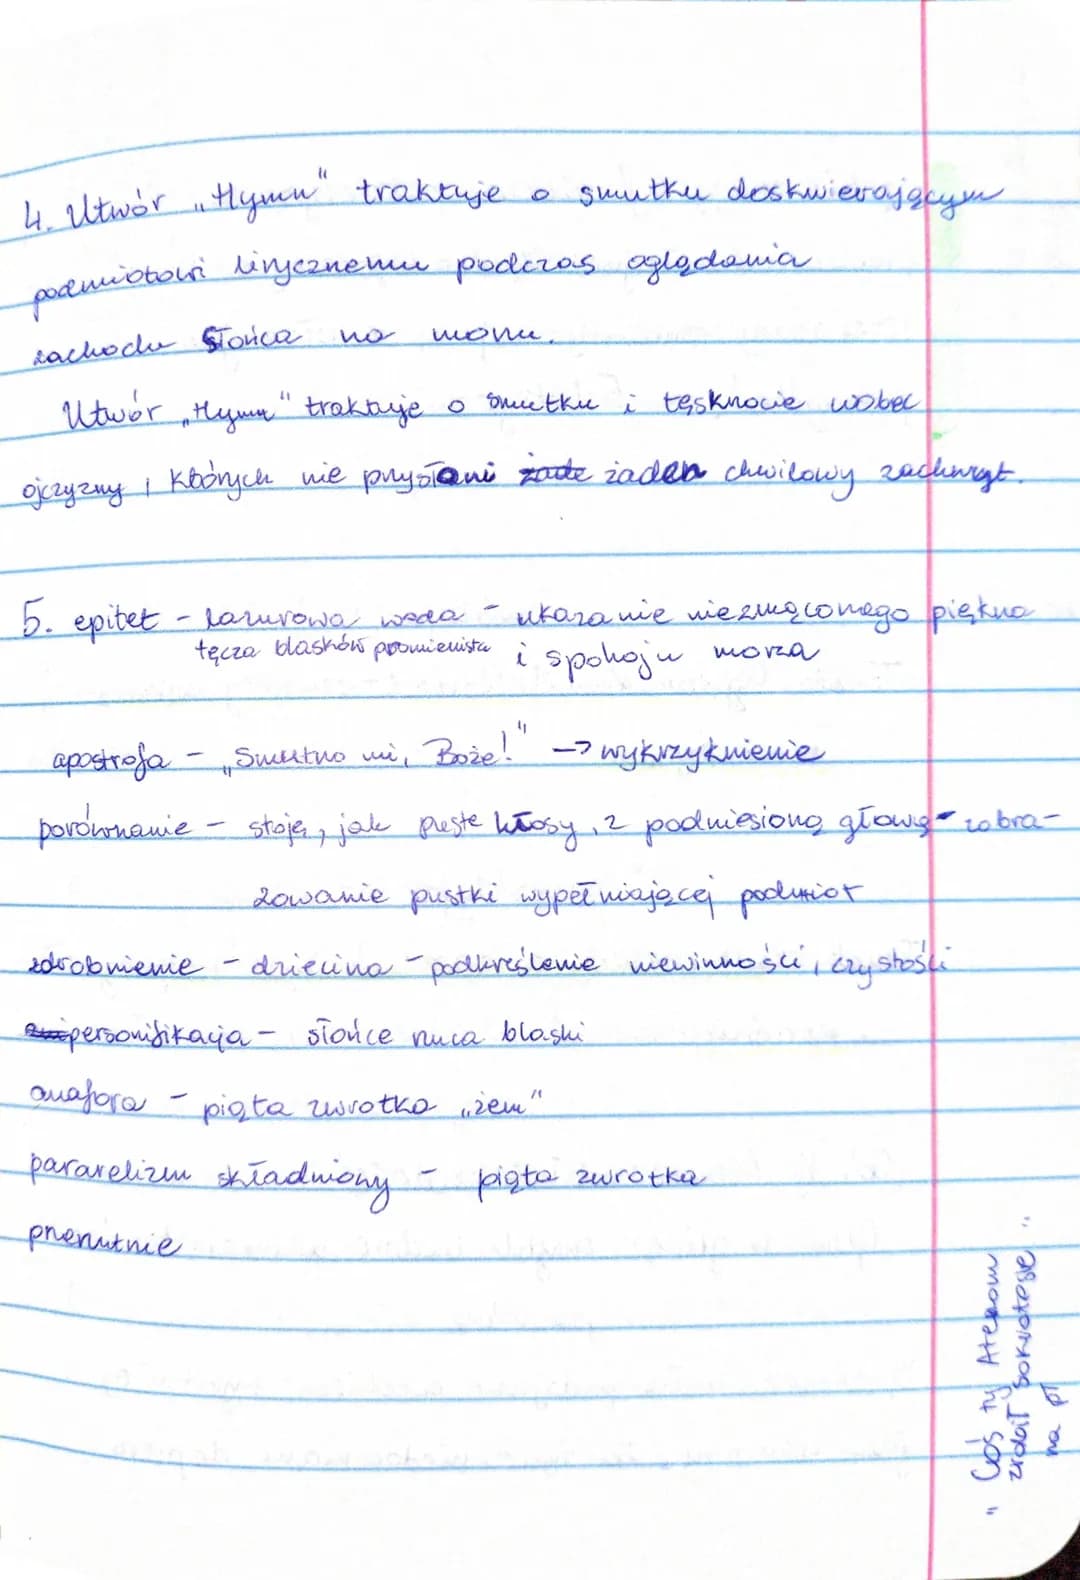 4. Utwór „Hymn" traktuje o smutku doskwierającym
podmiotowi lirycznemu podczas oglądania
zachodu słońca na morzu.
Utwór „Hymn" traktuje o smutku i tęsknocie wobec
ojczyzny, których nie przysłoni żaden chwilowy zachwyt.
5. epitet - lazurowa woda - ukazanie niezmąconego piękna
tęcza blasków promienista i spokoju morza
apostrofa - „Smutno mi, Boże!" -> wykrzyknienie
porównanie - stoję, jak puste kłosy, z podniesioną głową - zobra-
zowanie pustki wypełniającej podmiot
zdrobnienie - dziecina - podkreślenie niewinności, czystości
personifikacja - słońce rzuca blaski
anafora - piąta zwrotka „żem"
pararelizm składniony - piąta zwrotka
przerzutnie
„Coś ty Atenom
zrobił Sokratesie"
na pł